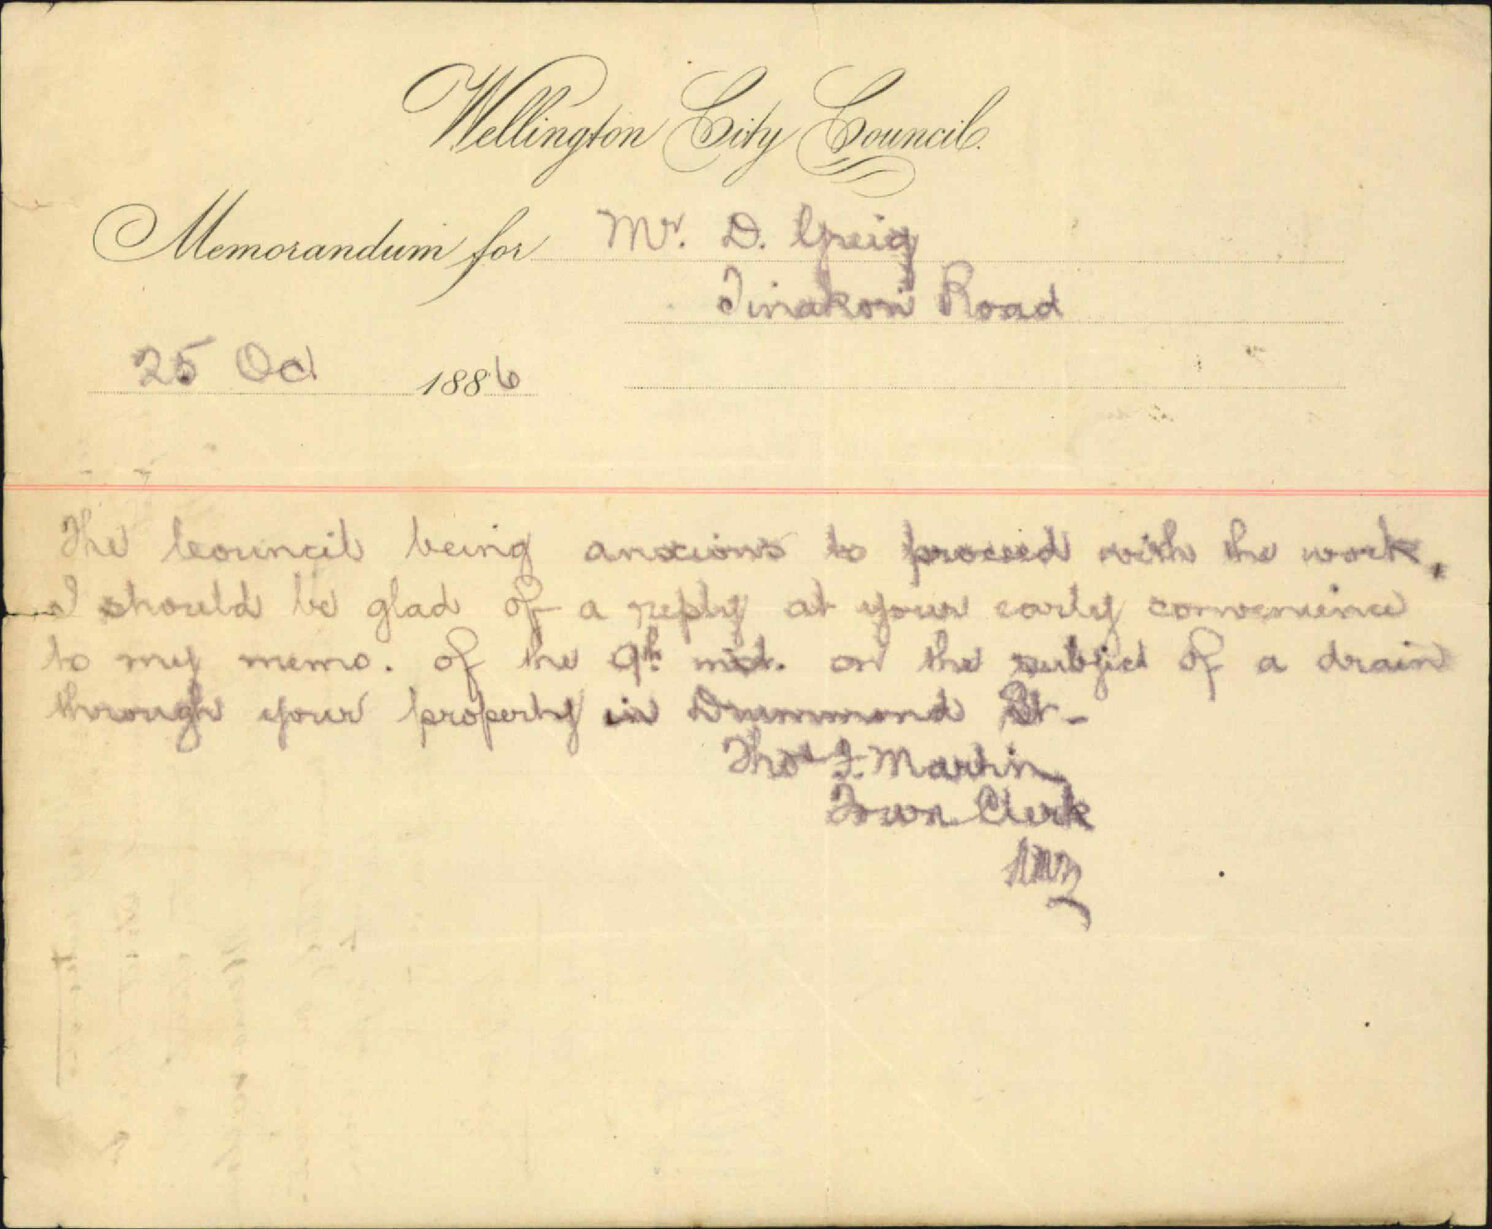 Wellington City Council.
Memorandum for Mr. D. Greig
Tinakori Road
25 Oct 1886
The Council being anxious to proceed with the work,
I should be glad of a reply at your early convenience
to my memo. of the 9th inst. on the subject of a drain
through your property in Drummond St-
Thos F. Martin
Town Clerk